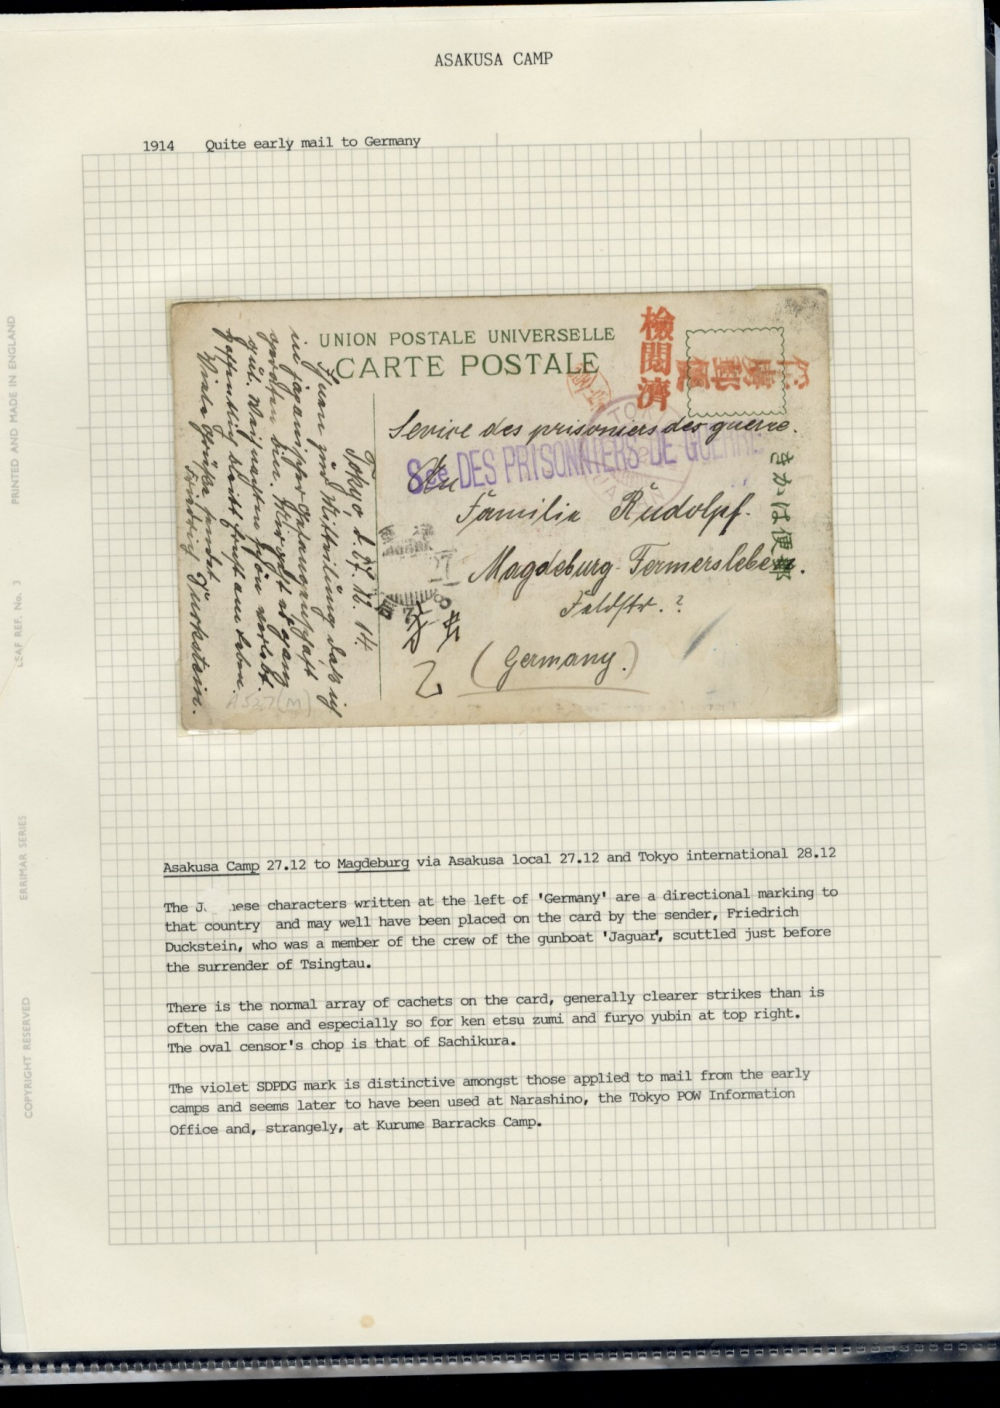 ASAKUSA CAMP
1914 Quite early mail to Germany
UNION POSTALE UNIVERSELLE
CARTE POSTALE
檢閲濟
俘虜郵便
Service des prisoniers des guerre.
Sce DES PRISONNIERS DE GUERRE
An
Familie Rudolpf.
Magdeburg-Fermersleben.
Feldstr. ?
(Germany.)
乙
きかは便郵
Tokyo d. 27. 12. 14
Ihnen zur Mitteilung daß ich
in japanischer Gefangenschaft
geraten bin. Mir geht es ganz
gut. Weihnachten schön verlebt.
hoffentlich bleibt Ernst am Leben.
Viele Grüße sendet
Friedrich Duckstein.
A527(M)
Asakusa Camp 27.12 to Magdeburg via Asakusa local 27.12 and Tokyo international 28.12
The J nese characters written at the left of 'Germany' are a directional marking to
that country and may well have been placed on the card by the sender, Friedrich
Duckstein, who was a member of the crew of the gunboat 'Jaguar', scuttled just before
the surrender of Tsingtau.
There is the normal array of cachets on the card, generally clearer strikes than is
often the case and especially so for ken etsu zumi and furyo yubin at top right.
The oval censor's chop is that of Sachikura.
The violet SDPDG mark is distinctive amongst those applied to mail from the early
camps and seems later to have been used at Narashino, the Tokyo POW Information
Office and, strangely, at Kurume Barracks Camp.
PRINTED AND MADE IN ENGLAND
LEAF REF. No. 3
ERRIMAR SERIES
COPYRIGHT RESERVED